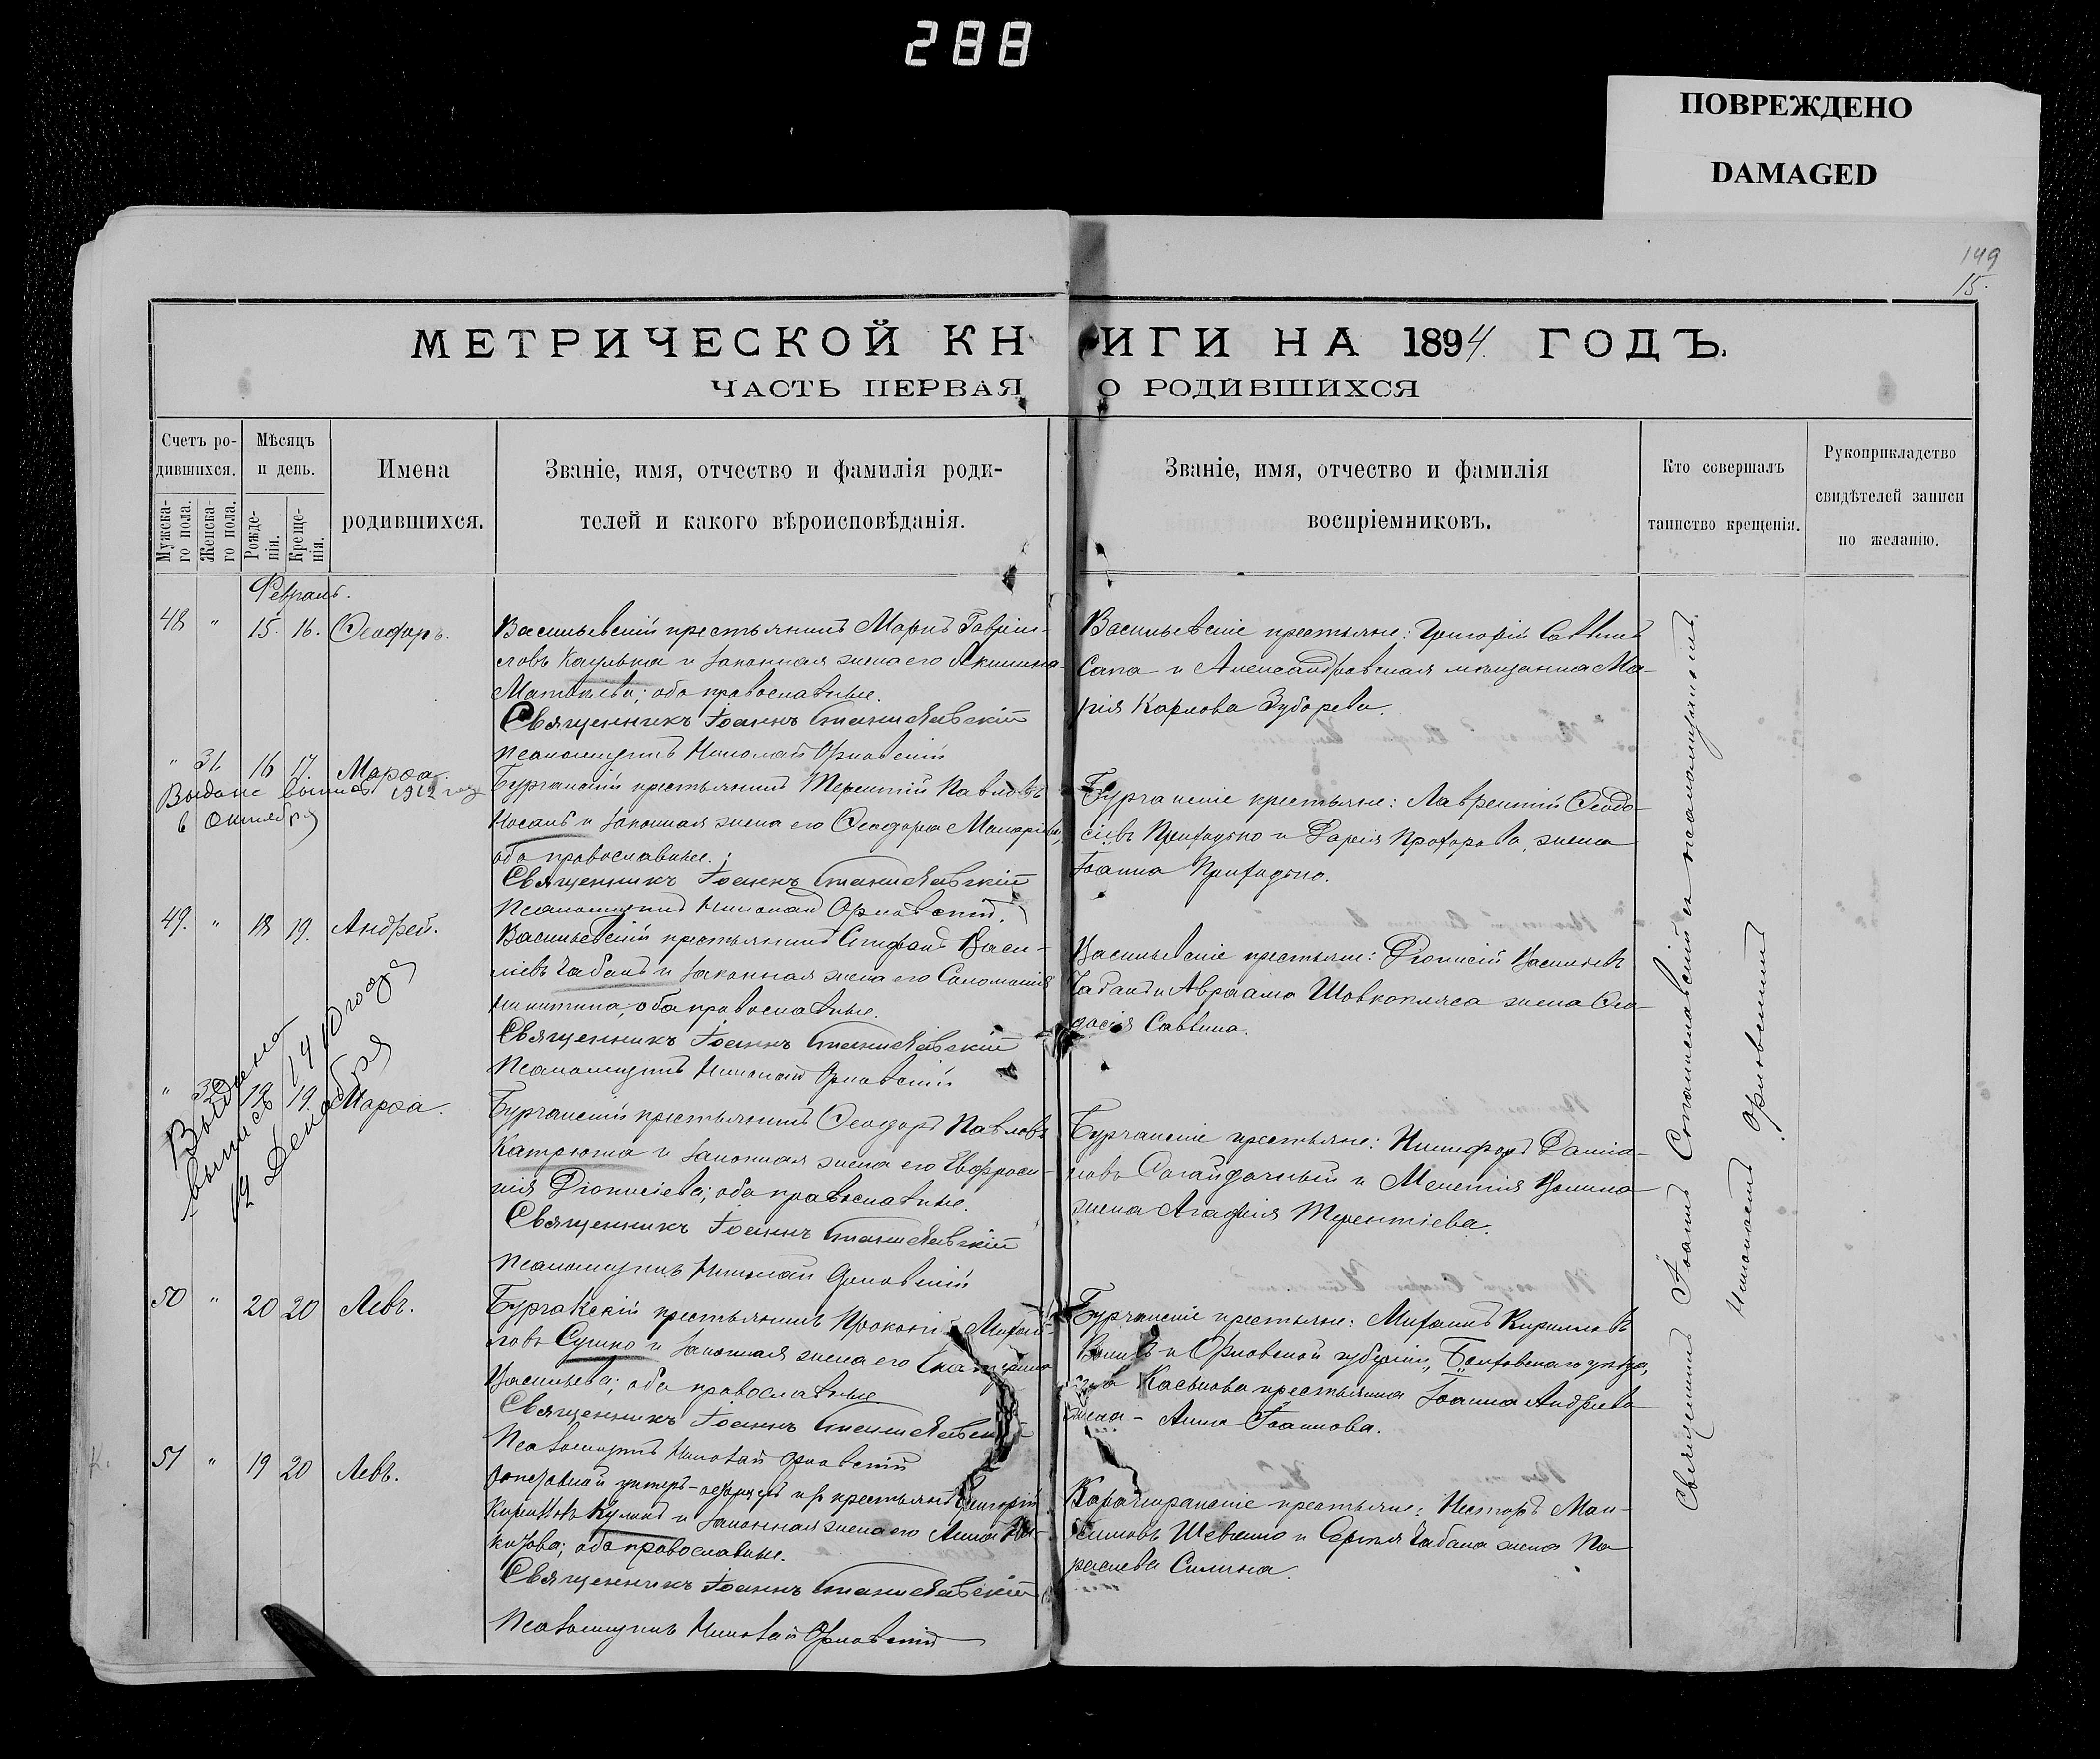 288
ПОВРЕЖДЕНО
DAMAGED
149
15.
МЕТРИЧЕСКОЙ КНИГИ НА 1894 ГОДЪ.
ЧАСТЬ ПЕРВАЯ О РОДИВШИХСЯ
Счетъ ро-
дившихся.
Мужска-
го пола.
Женска-
го пола.
Мѣсяцъ
и день.
Рожде-
нія.
Креще-
нія.
Имена
родившихся.
Званіе, имя, отчество и фамилія роди-
телей и какого вѣроисповѣданія.
Званіе, имя, отчество и фамилія
воспріемниковъ.
Кто совершалъ
таинство крещенія.
Рукоприкладство
свидѣтелей записи
по желанію.
Февраль.
48 " 15. 16. Ѳеодоръ.
Васильевскій крестьянинъ Маркъ Гаврі-
ловъ и законная жена его Акилина
Матѳіева; оба православные.
Священникъ Іоаннъ Станиславскій
Псаломщикъ Николай Орловскій
Васильевскіе крестьяне: Григорій Саввинъ
Сапа и Александровская мѣщанка Ма-
рія Карпова Зубарева.
" 31. 16 17. Марѳа.
Выдана выпись 1912 году
в Октября
Бурчакскій крестьянинъ Терентій Павловъ
Носань и законная жена его Ѳеодора Макаріева,
оба православные.
Священникъ Іоаннъ Станиславскій
Псаломщикъ Николай Орловскій.
Бурчакскіе крестьяне: Лаврентій Ѳеодо-
сіевъ Приходько и Дарія Прохорова, жена
Іоанна Приходько.
49. " 18 19. Андрей.
Васильевскій крестьянинъ Стефанъ Васи-
ліевъ Чабанъ и законная жена его Соломонія
Никитина, оба православные.
Священникъ Іоаннъ Станиславскій
Псаломщикъ Николай Орловскій
Васильевскіе крестьяне: Діонисій Васильевъ
Чабанъ и Авраама Шовкопляса жена Ѳео-
досія Саввина.
" 32 19 19. Марѳа.
Выдана
выпись 1910 года
12 Декабря
Бурчакскій крестьянинъ Ѳеодоръ Павловъ
Катрюха и законная жена его Евфроси-
нія Діонисіева; оба православные.
Священникъ Іоаннъ Станиславскій
Псаломщикъ Николай Орловскій
Бурчакскіе крестьяне: Никифоръ Даміа-
новъ Сагайдачный и Мелетія
жена Агафія Терентіева.
50 " 20 20 Левъ.
Бурчакскій крестьянинъ Прокопій Михай-
ловъ Сушко и законная жена его Екатерина
Васильева; оба православные.
Священникъ Іоаннъ Станиславскій
Псаломщикъ Николай Орловскій
Бурчакскіе крестьяне: Михаилъ Кирилловъ
и Орловской губерніи, Болховскаго уѣзда,
села крестьянина Іоанна Андреева
жена - Анна Іоаннова.
51 " 19 20 Левъ.
Запасной унтеръ-офицеръ изъ крестьянъ Григорій
и законная жена его Анна
оба православные.
Священникъ Іоаннъ Станиславскій
Псаломщикъ Николай Орловскій
крестьяне: Несторъ Мак-
симовъ Шевченко и Сергія Чабана жена Па-
раскева Силина.
Священникъ Іоаннъ Станиславскій съ псаломщикомъ
Николаемъ Орловскимъ